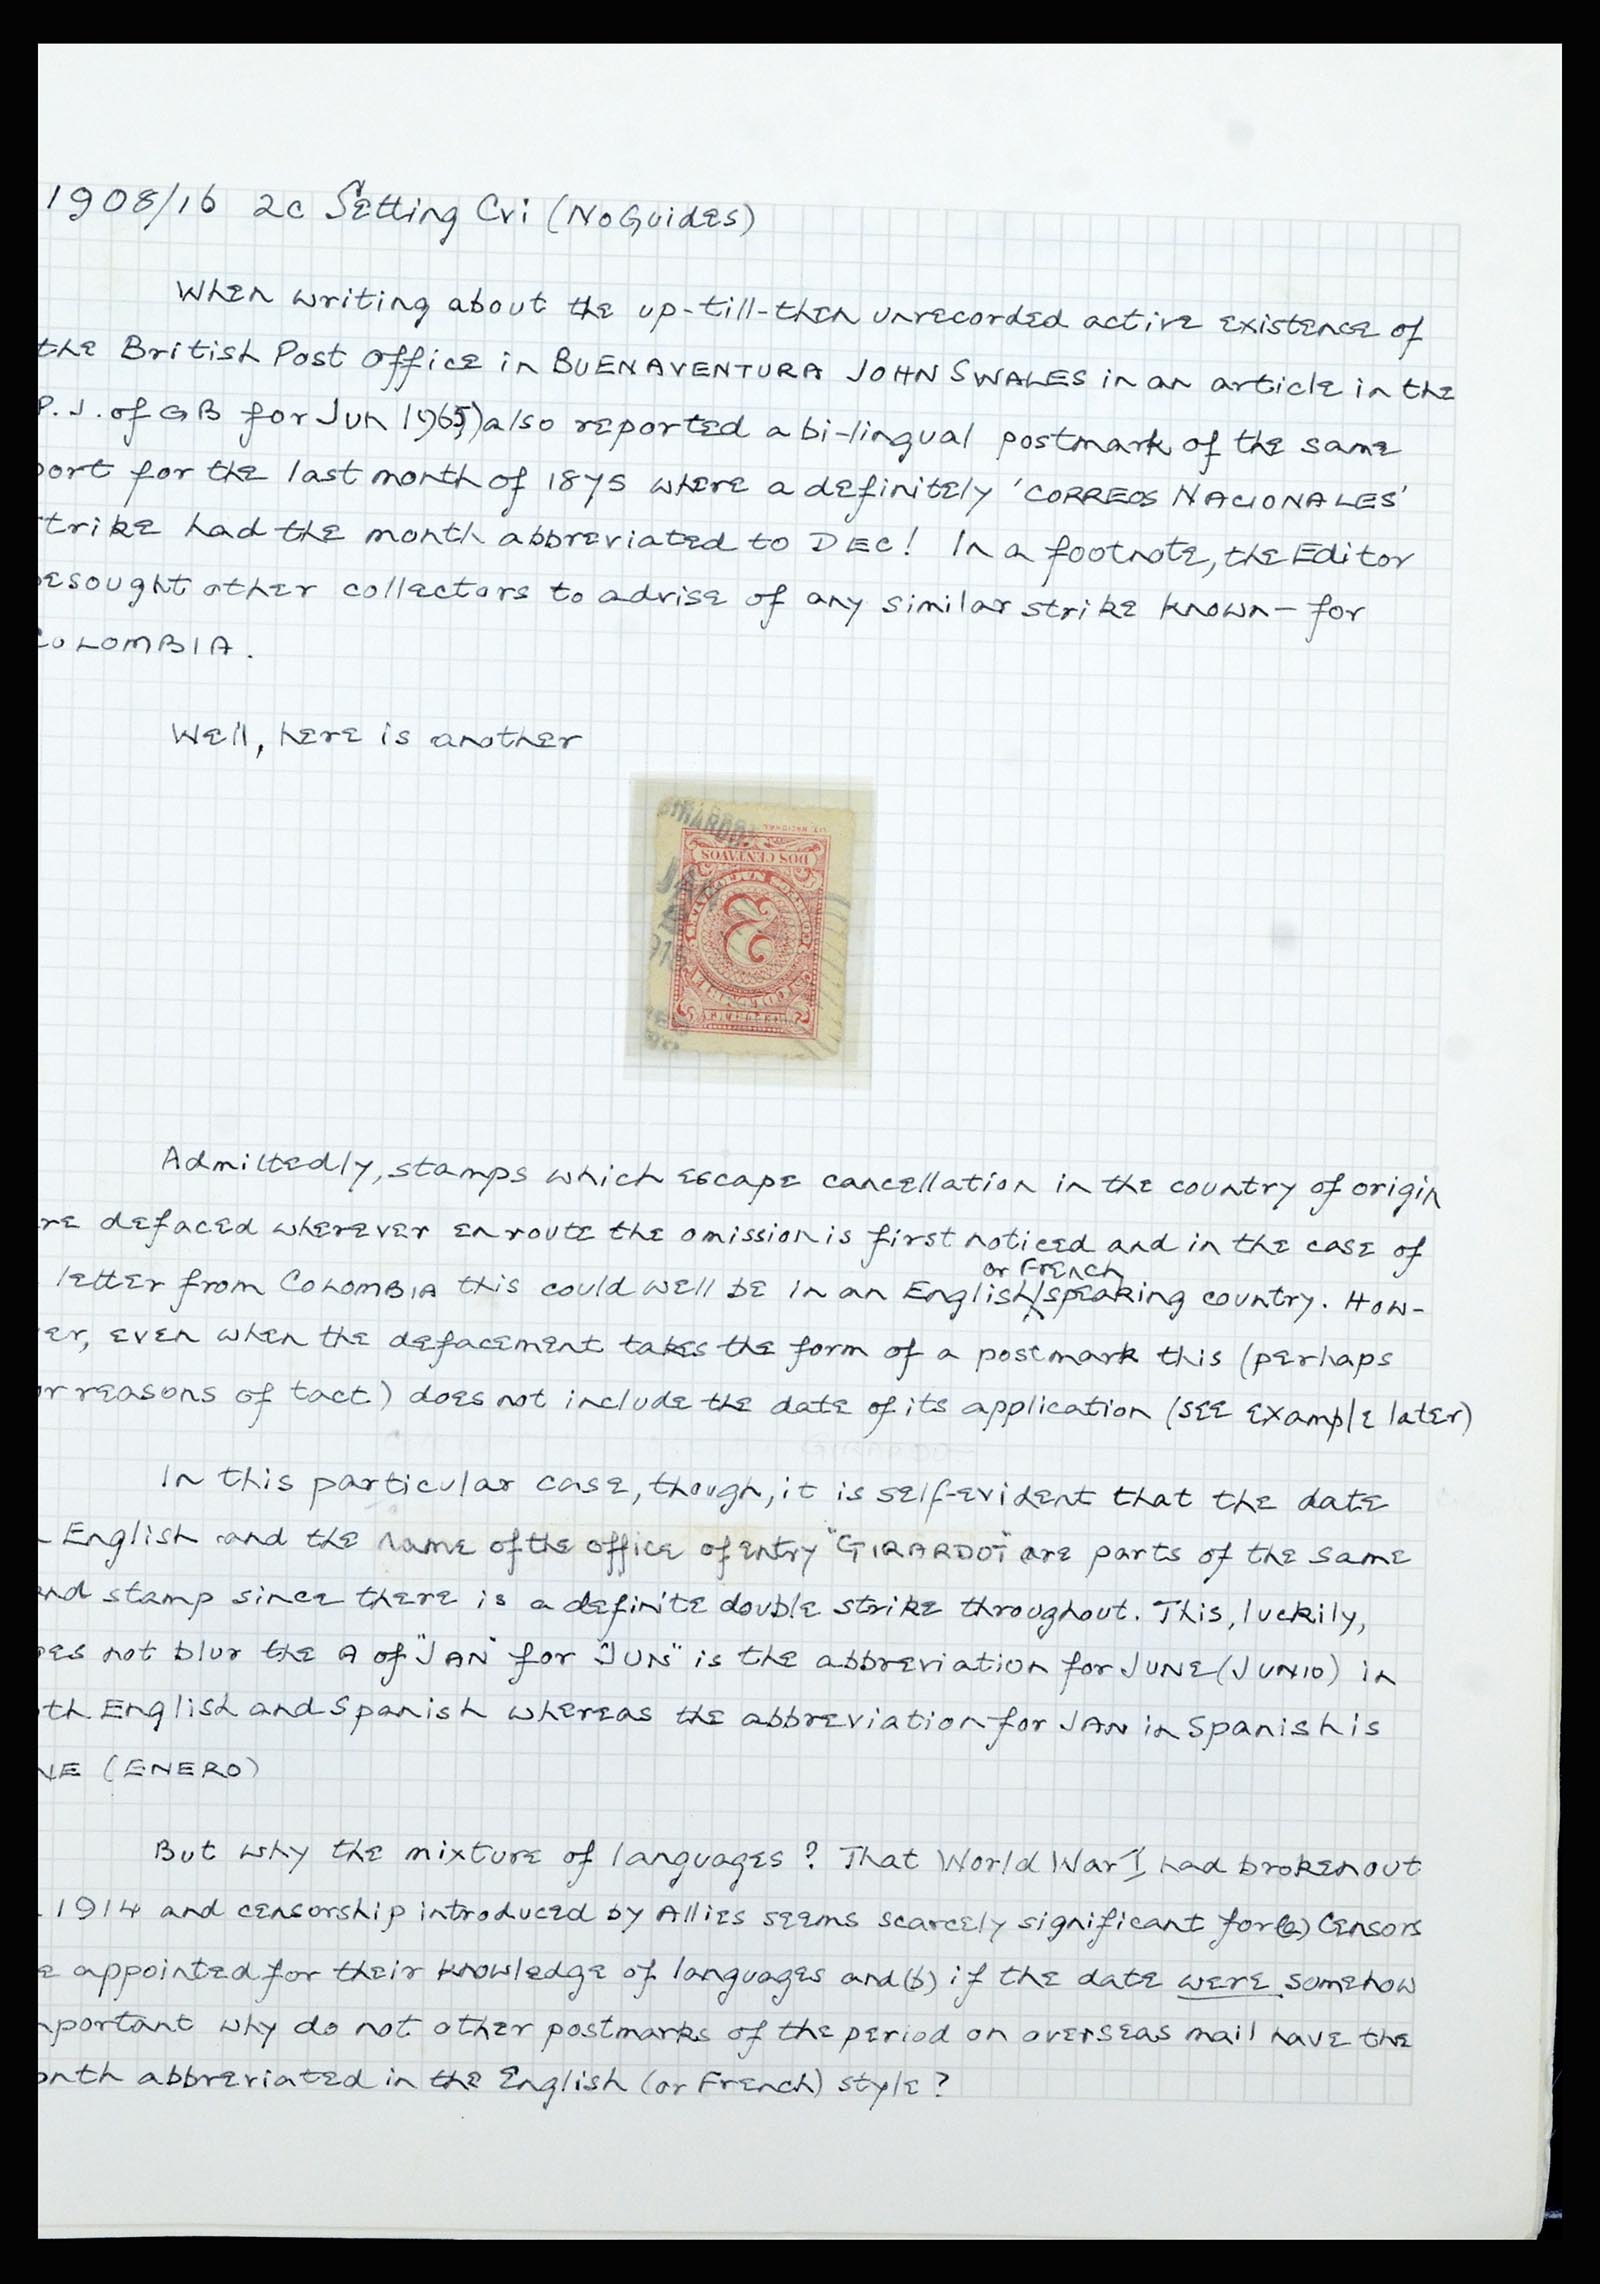 1908/16 2c Setting Cvi (No Guides)
When writing about the up-till-then unrecorded active existence of
the British Post Office in BUENAVENTURA JOHN SWALES in an article in the
P.J. of GB for Jun 1965) also reported a bi-lingual postmark of the same
port for the last month of 1875 where a definitely 'CORREOS NACIONALES'
trike had the month abbreviated to DEC! In a footnote, the Editor
esought other collectors to advise of any similar strike known - for
COLOMBIA.
Well, here is another
GIRARDOT
LIT. NACIONAL
DOS CENTAVOS
CORREOS NACIONALES
JAN
2
191
COLOMBIA
Admittedly, stamps which escape cancellation in the country of origin
re defaced wherever en route the omission is first noticed and in the case of
or French
letter from COLOMBIA this could well be in an English/speaking country. How-
er, even when the defacement takes the form of a postmark this (perhaps
or reasons of tact) does not include the date of its application (see example later)
In this particular case, though, it is self-evident that the date
English and the name of the office of entry "GIRARDOT" are parts of the same
and stamp since there is a definite double strike throughout. This, luckily,
oes not blur the A of "JAN" for "JUN" is the abbreviation for JUNE (JUNIO) in
oth English and Spanish whereas the abbreviation for JAN in Spanish is
NE (ENERO)
But why the mixture of languages? That World War I had broken out
1914 and censorship introduced by Allies seems scarcely significant for (a) Censors
e appointed for their knowledge of languages and (b) if the date were somehow
mportant why do not other postmarks of the period on overseas mail have the
onth abbreviated in the English (or French) style?